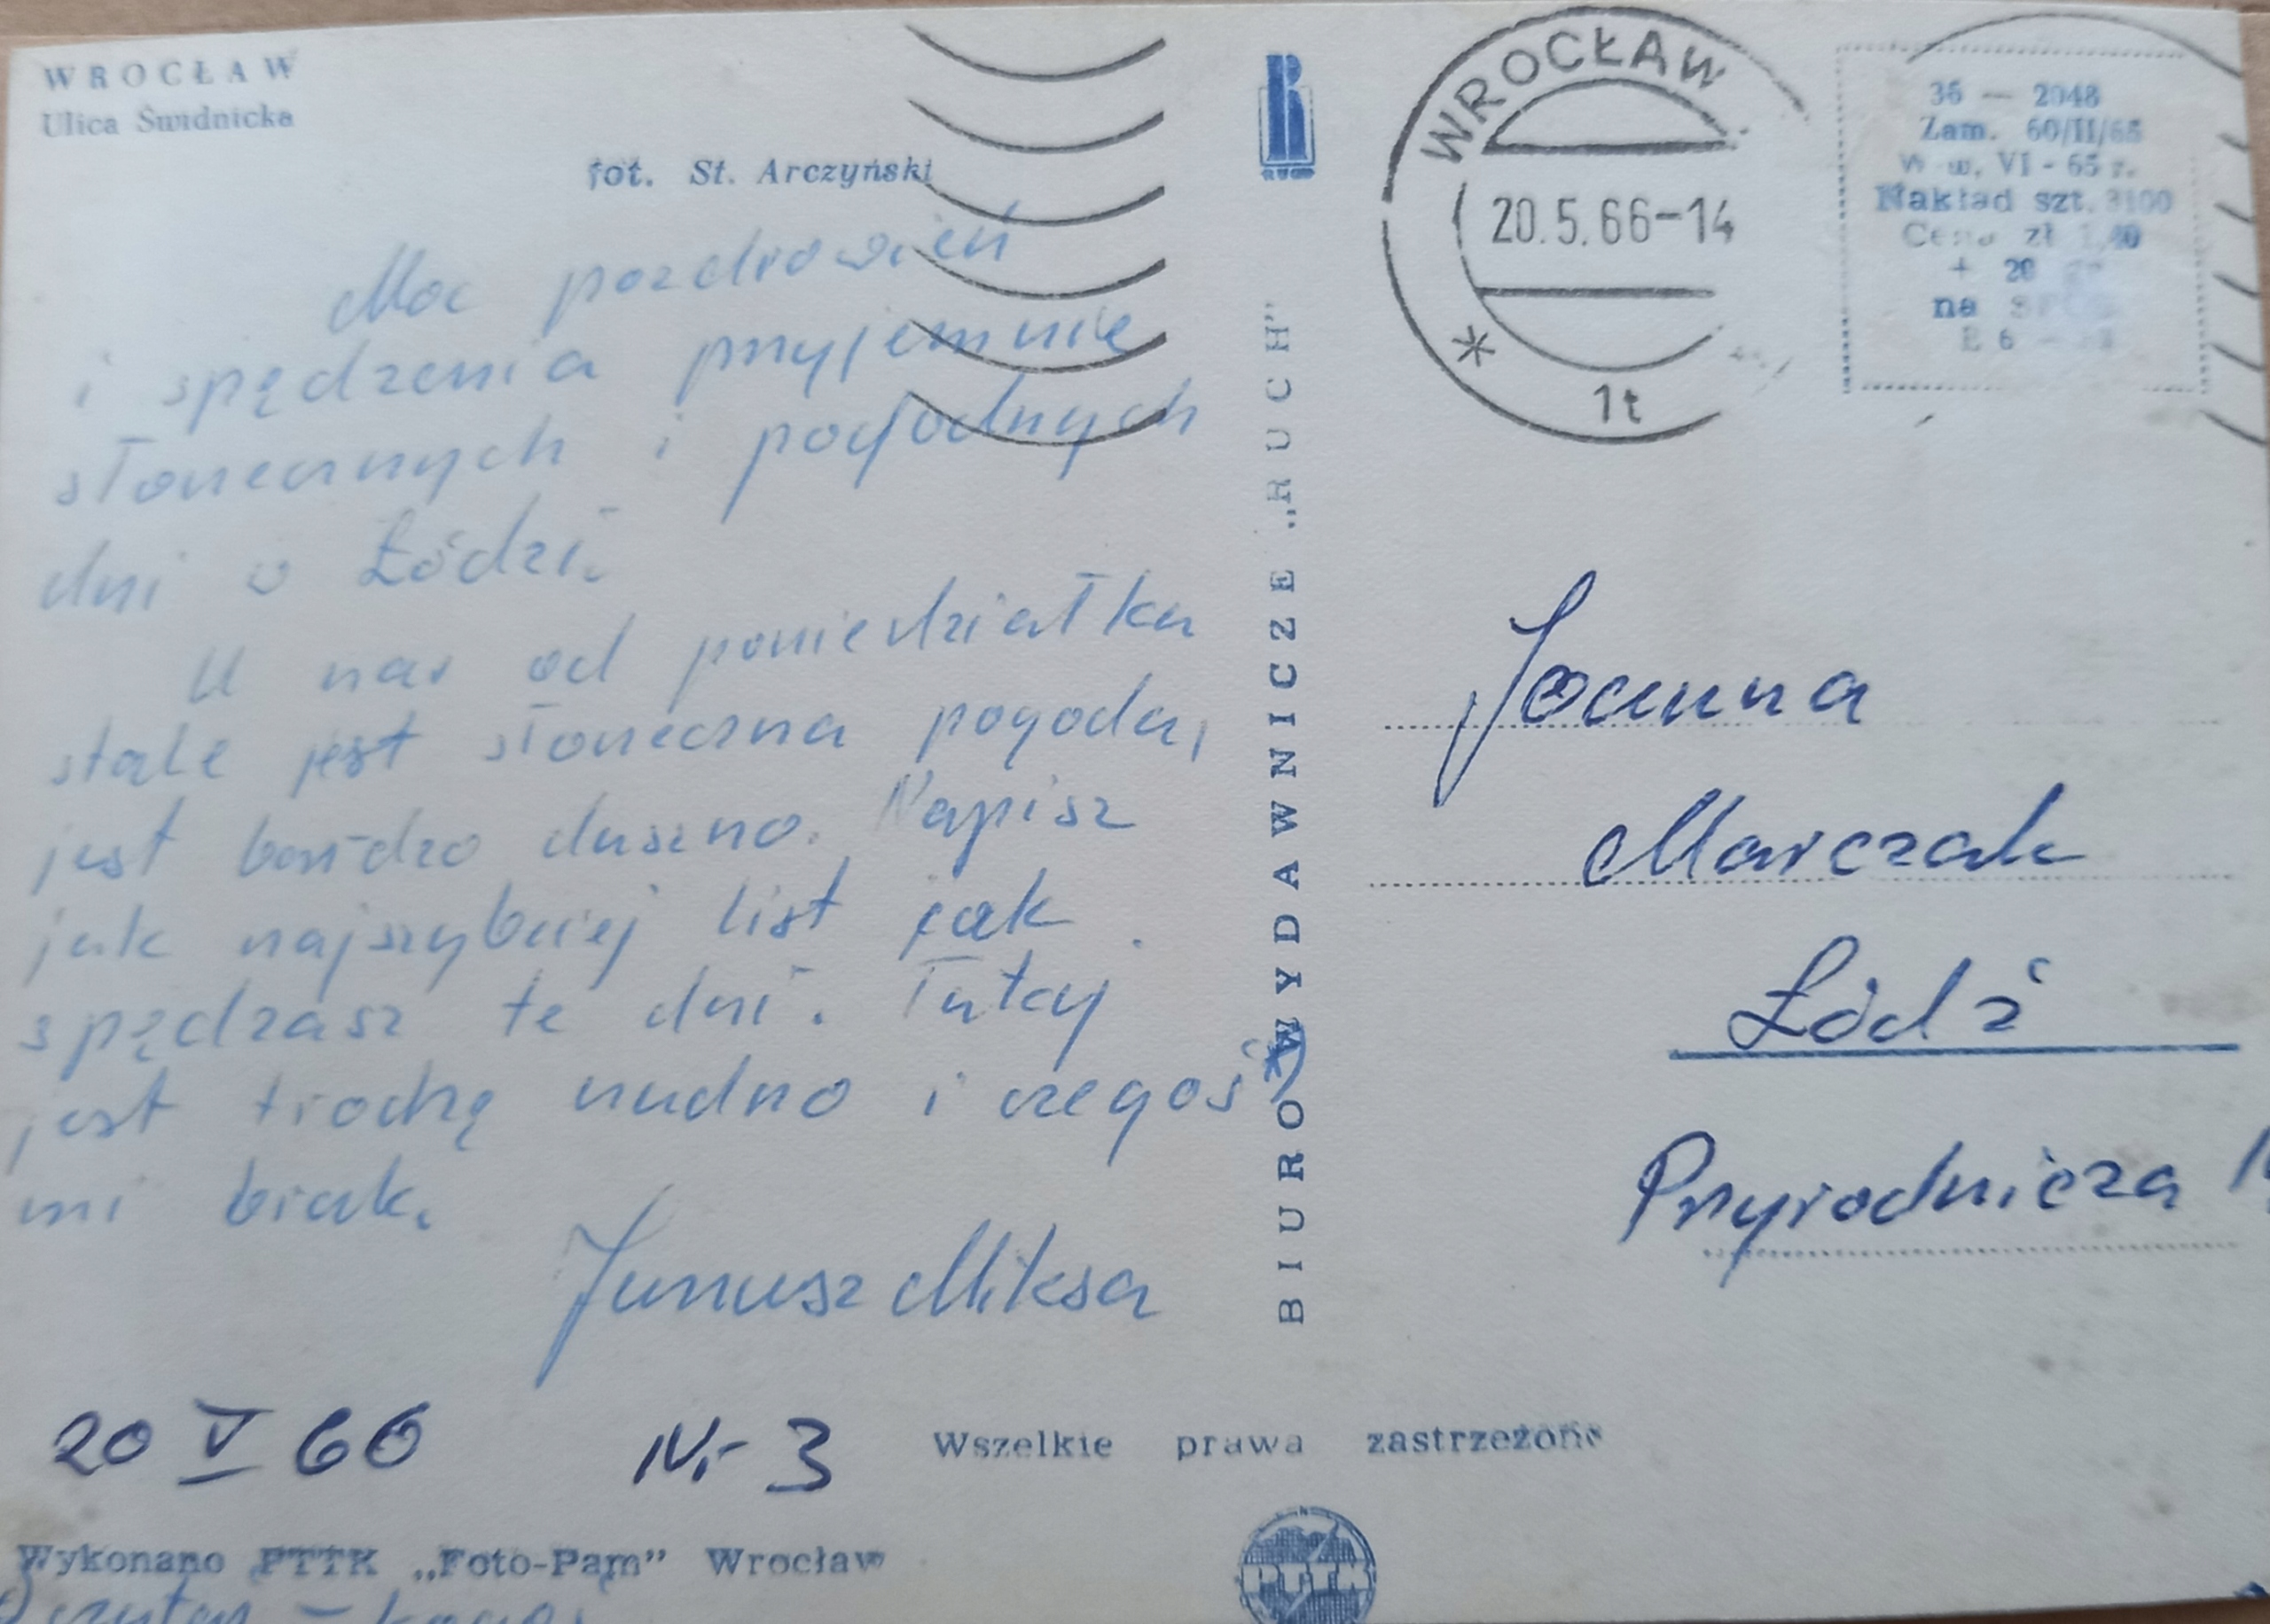 WROCŁAW
Ulica Świdnicka
fot. St. Arczyński
Moc pozdrowień
i spędzenia przyjemnie
słonecznych i pogodnych
dni w Łodzi.
U nas od poniedziałku
stale jest słoneczna pogoda,
jest bardzo duszno. Napisz
jak najszybciej list jak
spędzasz te dni. Tutaj
jest trochę nudno i czegoś*)
mi brak.
Janusz Miksa
20 V 66 Nr 3
Wszelkie prawa zastrzeżone
Wykonano PTTK „Foto-Pam” Wrocław
czytaj – kogoś
PTTK
BIURO WYDAWNICZE „RUCH”
R
RUCH
WROCŁAW
20.5.66-14
* 1t
36 — 2048
Zam. 60/II/65
W w, VI - 65 r.
Nakład szt. 3100
Cena zł 1,40
+ 20
na
Joanna
Marczak
Łódź
Przyrodnicza